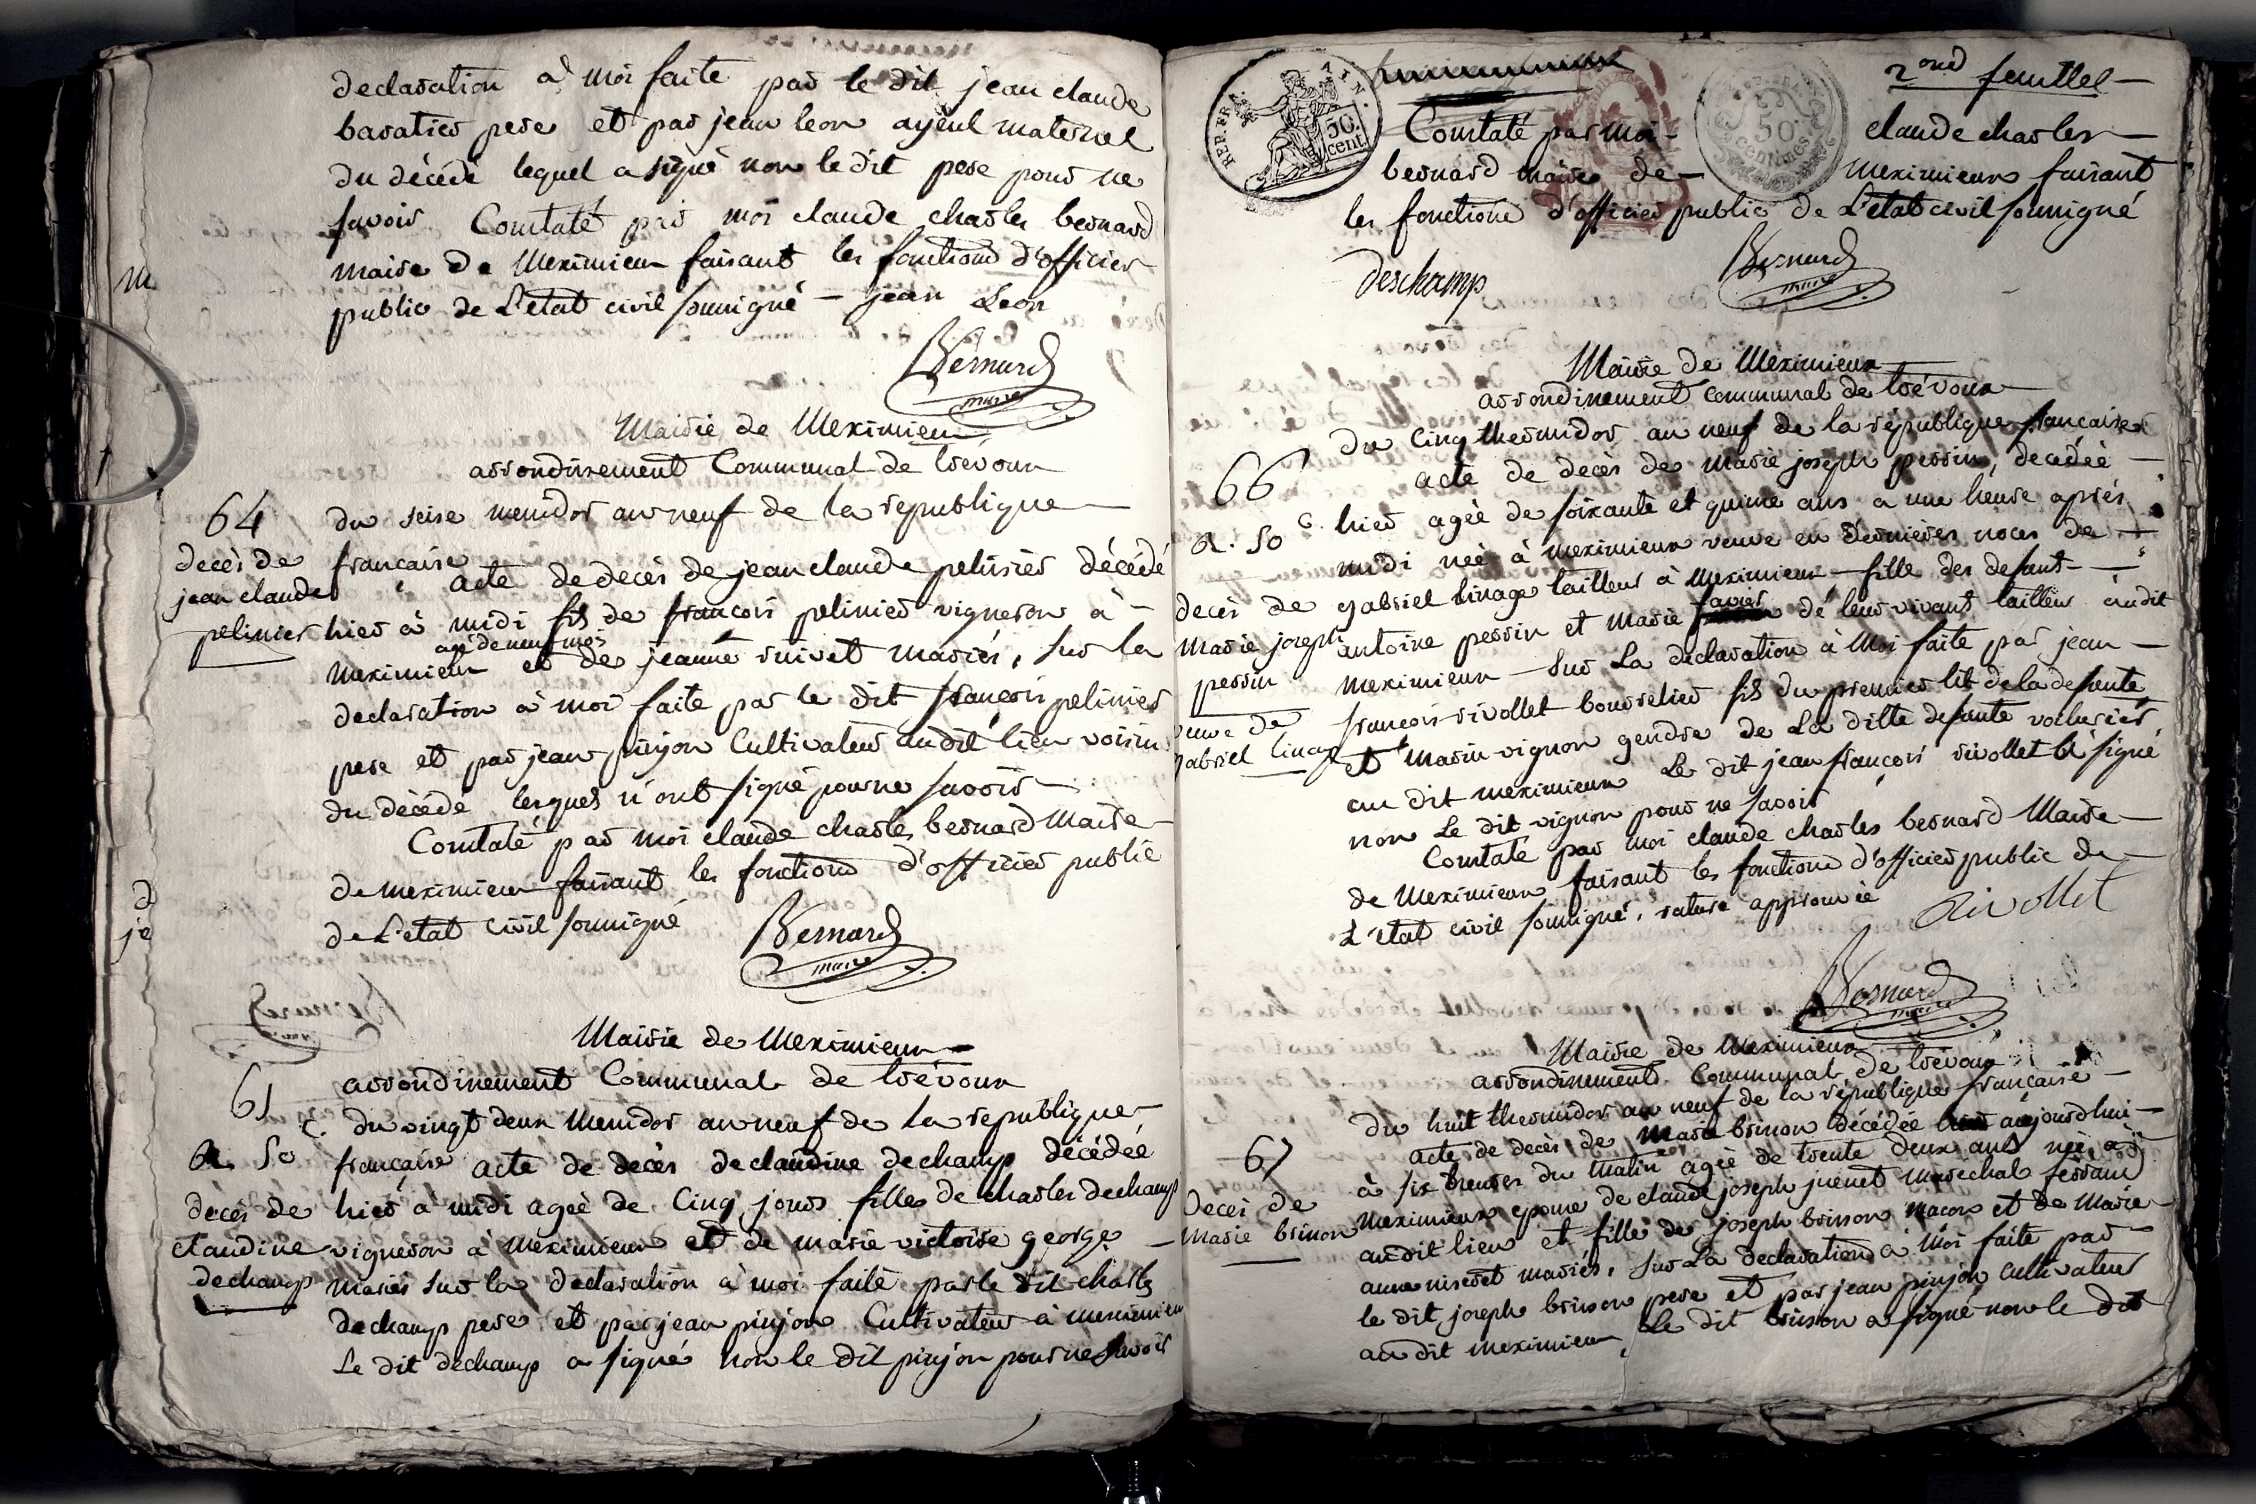 declaration a moi faite par le dit jean claude
baratier pere et par jean leon ayeul maternel
du décédé lequel a signé non le dit pere pour ne
savoir Constaté par moi claude charles bernard
maire de Meximieux faisant les fonctions d'officier
public de L'etat civil soussigné — jean Leon
Bernard
maire
Mairie de Meximieux
arrondissement Communal de trevoux
64
du seise messidor an neuf de la republique
decès de
jean claude
pelissier
francaise
acte de decès de jean claude pelissier décédé
hier à midi fils de francois pelissier vigneron à
agé de neuf mois
meximieux et de jeanne rivet mariés, sur la
declaration à moi faite par le dit françois pelissier
pere et par jean pinjon Cultivateur audit lieu voisin
du décédé lesquels n'ont signé pour ne savoir
Constaté par moi claude charles bernard Maire
de meximieux faisant les fonctions d'officier public
de L'etat civil soussigné
Bernard
maire
Mairie de Meximieux
arrondissement Communal de trévoux
65
du vingt deux Messidor an neuf de la republique
R. 50 c.
decès de
claudine
dechamp
française acte de decès de claudine dechamp décédée
hier à midi agée de Cinq jours fille de charles dechamp
vigneron a meximieux et de marie victoire george
mariés sur la declaration à moi faite par le dit charles
dechamp pere et par jean pinjon Cultivateur a meximieux
Le dit dechamp a signé non le dit pinjon pour ne savoir
2ond feuillet
REP. FRA.
50
cent.
50
centimes
Constaté par moi claude charles
bernard maire de meximieux faisant
les fonctions d'officier public de L'etat civil soussigné
deschamp
Bernard
maire
Mairie de Meximieux
arrondissement communal de trévoux
66
du cinq thermidor an neuf de la république française
acte de decès de marie joseph perrin, decédée
R. 50 c.
decès de
marie joseph
perrin
veuve de
gabriel linage
hier agée de soixante et quinse ans a une heure après
midi née à meximieux veuve en dernieres noces de
gabriel linage tailleur à Meximieux fille des defunt
antoine perrin et marie favier de leur vivant tailleur audit
meximieux sur La declaration à Moi faite par jean
françois rivollet bourrelier fils du premier lit de la defunte
et marin vignon gendre de La ditte defunte voiturier
au dit meximieux Le dit jean françois rivollet a signé
non Le dit vignon pour ne savoir
Constaté par moi claude charles bernard Maire
de Meximieux faisant les fonctions d'officier public de
L'etat civil soussigné. rature approuvée
Rivollet
Bernard
maire
Mairie de Meximieux
arrondissement Communal de trévoux
67
du huit thermidor an neuf de la république française
decès de
Marie brisson
acte de decès de Marie brisson décédée aujourdhui
à six heures du matin agée de trente deux ans née à
meximieux epouse de claude joseph juenet marechal ferrant
audit lieu et fille de joseph brisson macon et de Marie
anne niseret mariés, sur La declaration à moi faite par
le dit joseph brisson pere et par jean pinjon cultivateur
au dit meximieux, Le dit brisson a signé non le dit